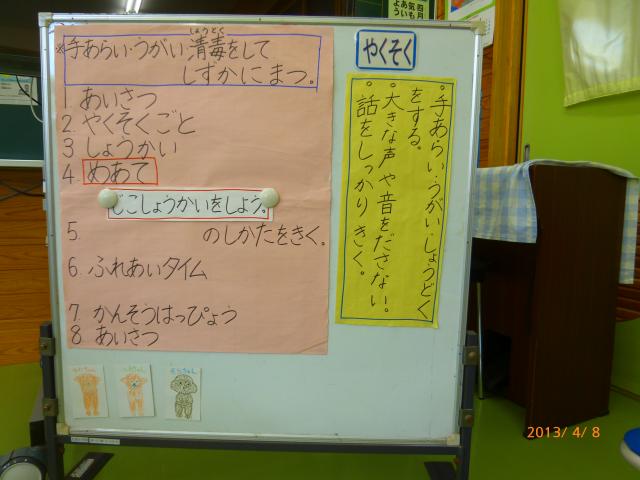 ※手あらい・うがい・消毒をして
しょうどく
しずかにまつ。
1. あいさつ
2. やくそくごと
3 しょうかい
4. めあて
じこしょうかいをしよう。
5. のしかたをきく。
6. ふれあいタイム
7. かんそうはっぴょう
8. あいさつ
やくそく
・手あらい・うがい・しょうどく
をする。
・大きな声や音をださない。
・話をしっかりきく。
2013/ 4/ 8